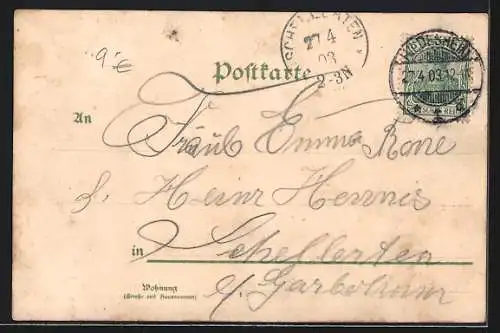 9.-€
SCHELLERTEN
27 4
03
2-3N
HILDESHEIM
27.4.03.12-
Postkarte
An
Fräul Emma Rone
p. Heinr Hennis
in Schellerten
Wohnung
(Straße und Hausnummer)
b/ Garbolzum